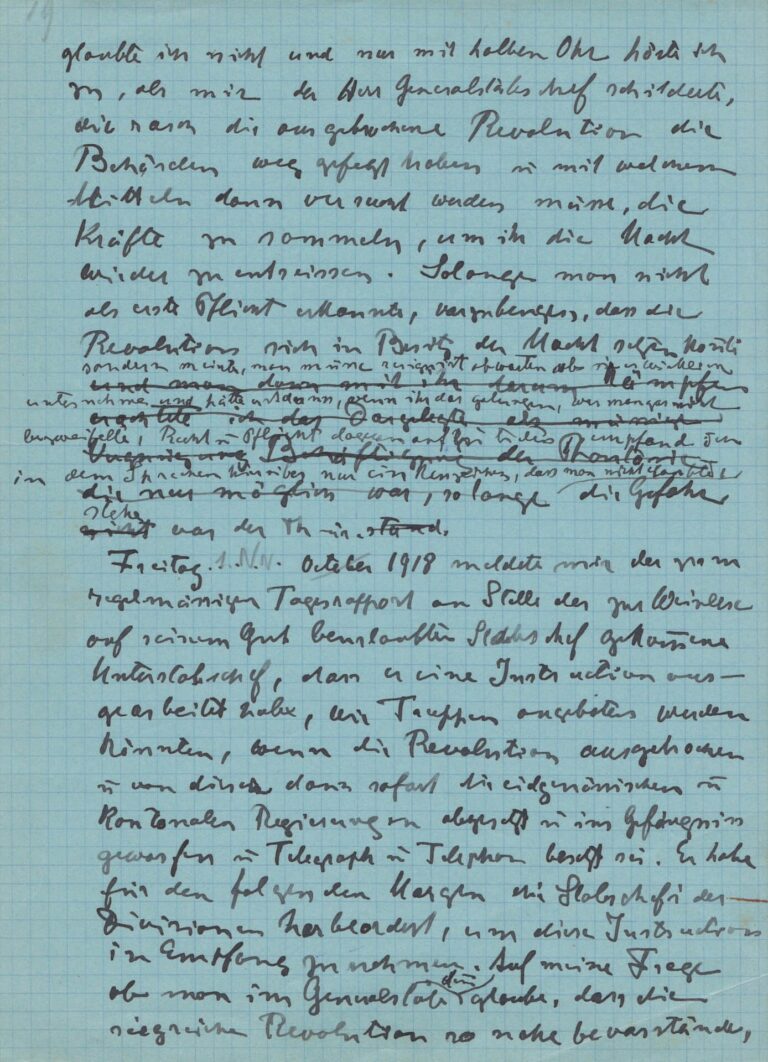 19
glaubte ich nicht und nur mit halbem Ohr hörte ich
zu, als mir der Herr Generalstabschef schilderte,
wie rasch die ausgebrochene Revolution die
Behörden weg gefegt haben u mit welchen
Mitteln dann versucht werden müsse, die
Kräfte zu sammeln, um ihr die Macht
wieder zu entreissen. Solange man nicht
als erste Pflicht erkannte, vorzubeugen, dass die
Revolution sich in Besitz der Macht setzen könnte
sondern meinte, man müsse resigniert abwarten ob sie
und man dann mit ihr darum kämpfen
unternehmen und hätte erst dann, wenn ihr das gelungen, was man gar nicht
erachtete ich das Dargelegte als müssige
bezweifelte, Recht u Pflicht dagegen aufzutreten empfand ich
Beschäftigung der Phantasie
in dem Sprechen hierüber nur ein Kennzeichen, dass man nicht glaubte,
die nur möglich war, solange die Gefahr
stehe
nicht vor der Thür. stand.
Freitag. 1. Nov. October 1918 meldete mir der zum
regelmässigen Tagesrapport an Stelle des zur Weinlese
auf seinem Gut beurlaubten Stabschef gekommene
Unterstabschef, dass er eine Instruction aus-
gearbeitet habe, wie Truppen aufgeboten werden
könnten, wenn die Revolution ausgebrochen
u von dieser dann sofort die eidgenössischen u
kantonalen Regierungen abgesetzt u ins Gefängniss
geworfen u Telegraph u Telephon besetzt sei. Er habe
für den folgenden Morgen die Stabschefs der
Divisionen herbeordert, um diese Instructions
in Empfang zu nehmen. Auf meine Frage
ob man im Generalstab denn glaube, dass die
siegreiche Revolution so nahe bevorstände,